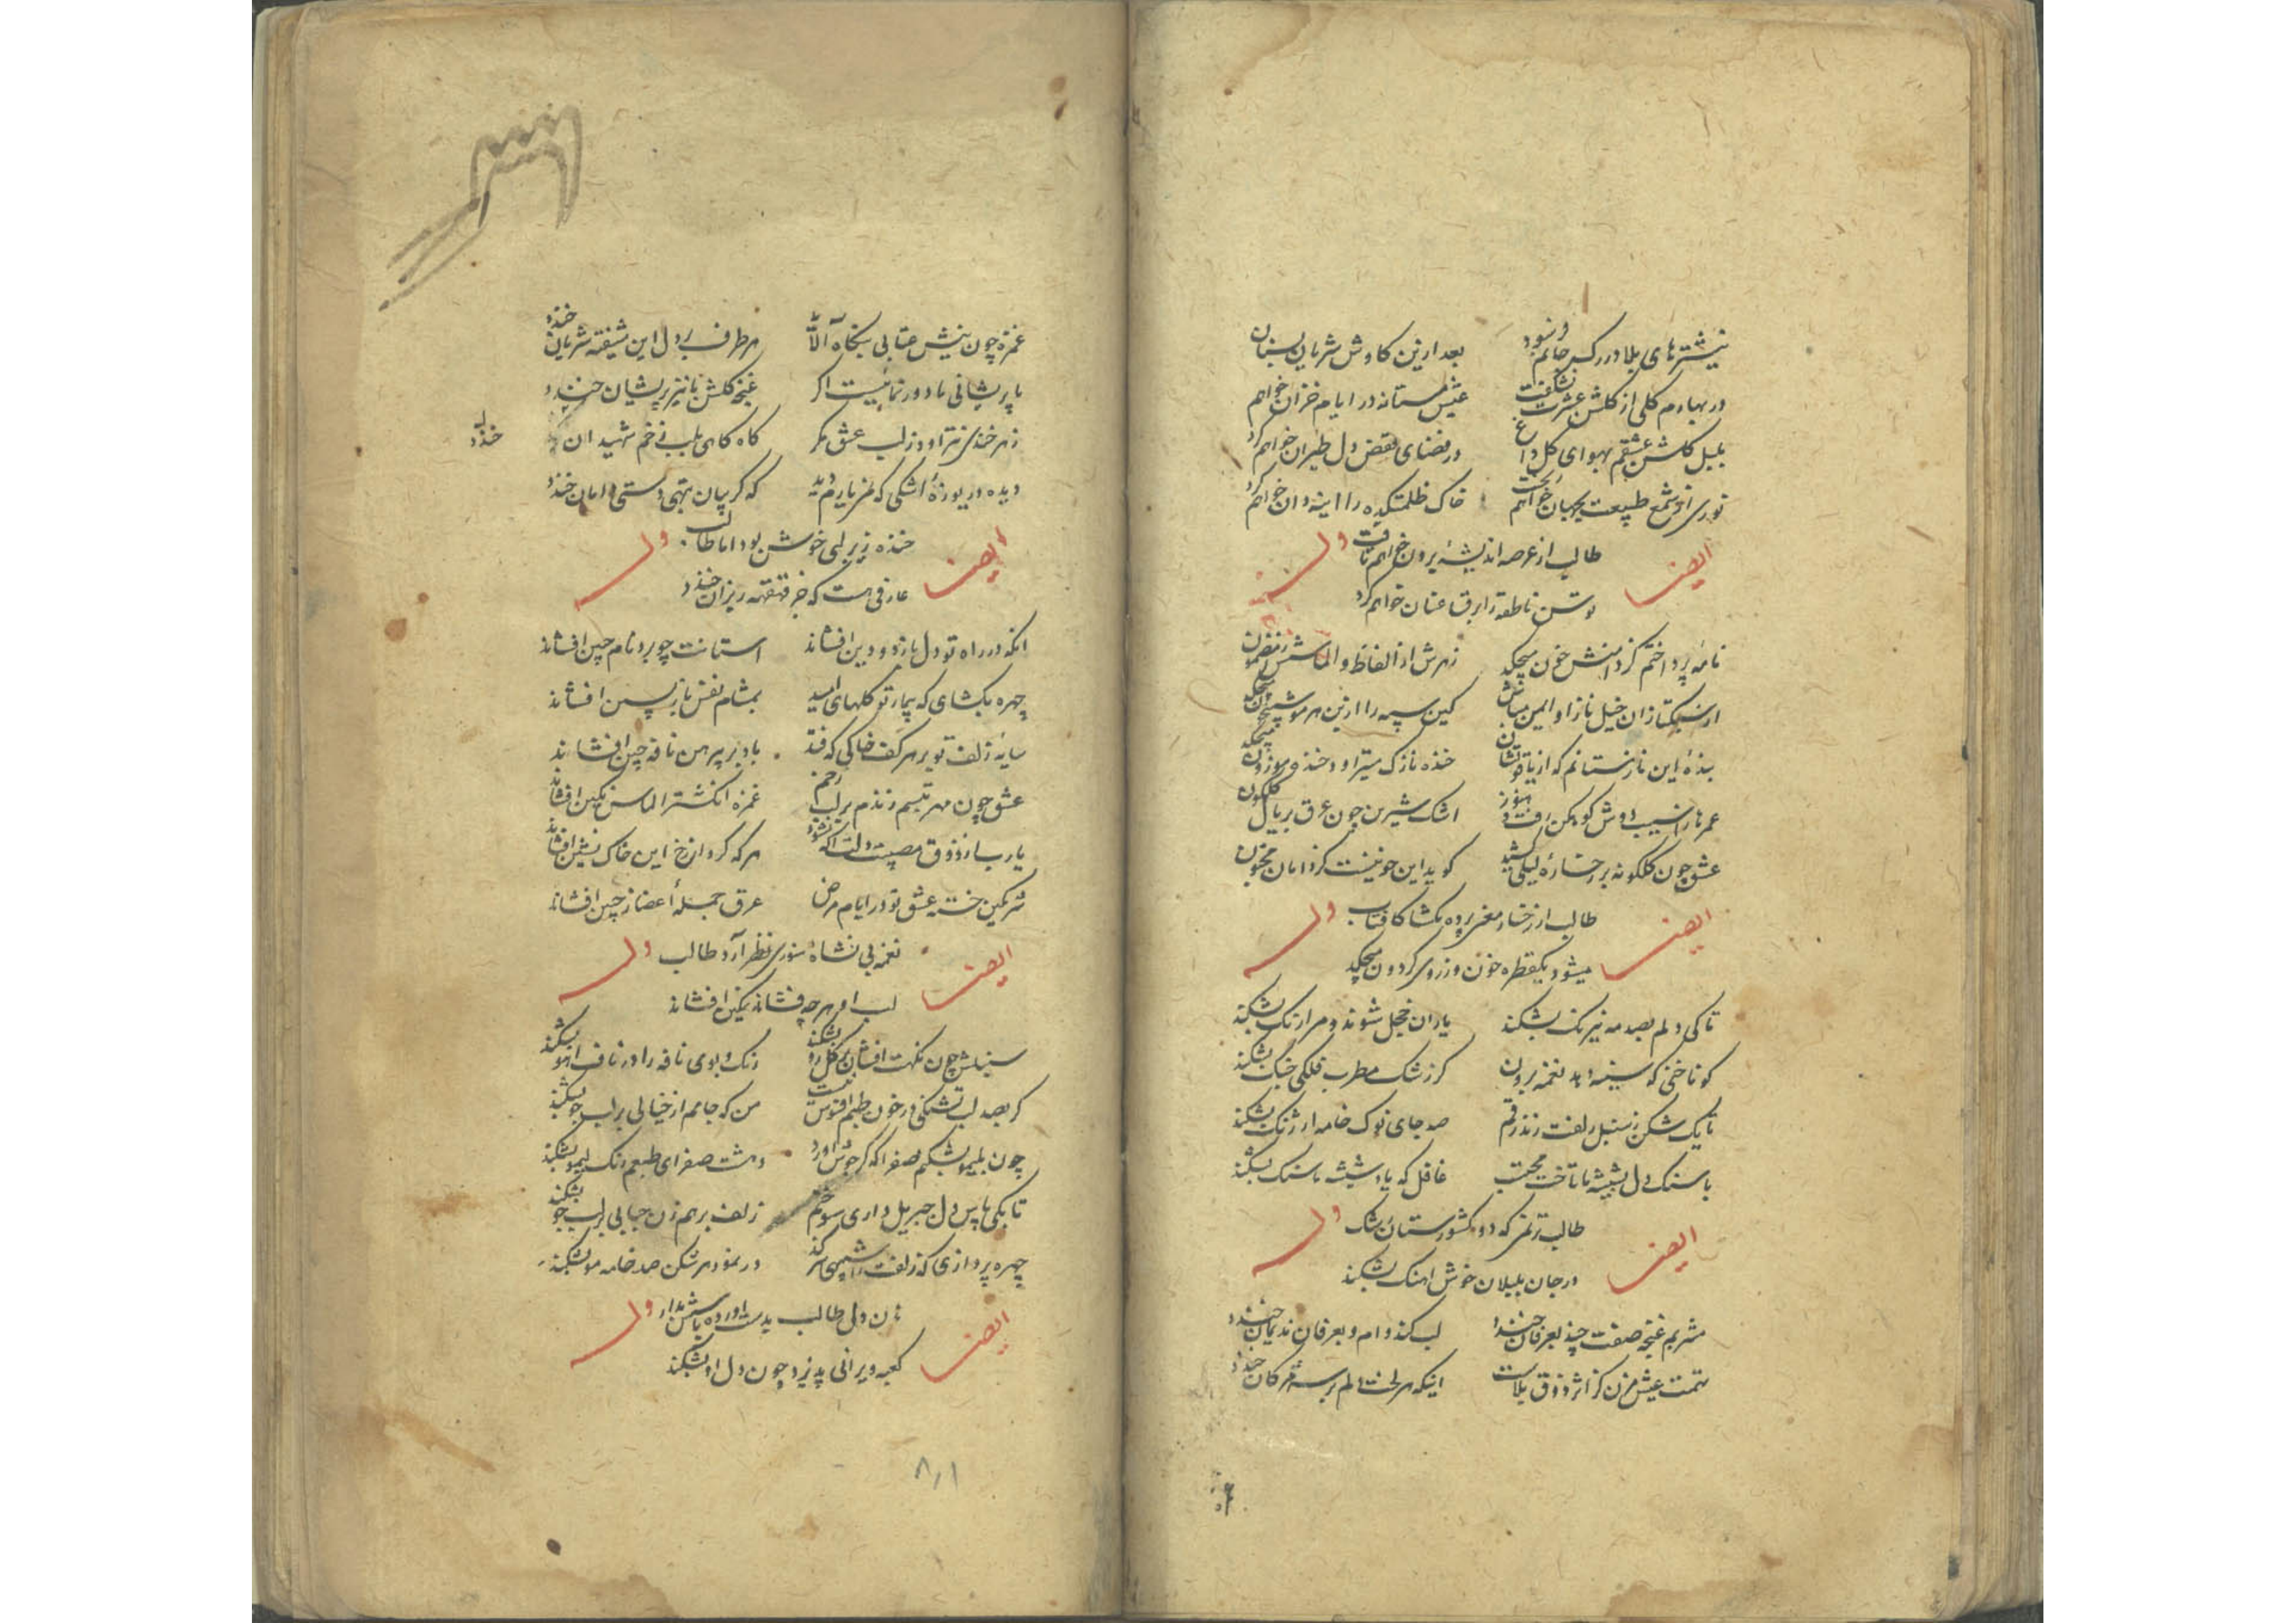 نیشترهای بلا در رک جانم و نسود بعد ازین کاوش شریان بسنان
در بهارم کلی از کلشن عشرت نشکفت عیش مستانه در ایام خزان خواهم
بلبل کلشن عشقم بهوای کل داغ در فضای قفص دل طیران خواهم کرد
نوری از شمع طبیعت بجهان خواهم ریخت خاک ظلمتکده را اینه دان خواهم کرد
طالب از عرصه اندیشه برون خواهم تاخت وله
ایضا
توسن ناطقه را برق عنان خواهم کرد
نامه پرداختم کز دامنش خون میچکد زهرش از الفاظ و الماسش ز مضمون
از سبکتازان خیل ناز او ایمن مباش کین سپه را از بن هر مو شبیخون میچکد
بنده این نازنستانم که از یاقوتشان خنده نازک میتراود خنده موزون میچکد
عمرها را شیب دوش کوهکن رفت و هنوز اشک شیرین چون عرق بر یال کلکون
عشق چون کلکونه بر رخساره لیلی کشد کوید این خونیست کز دامان مجنون
طالب از رخسار معنی پرده مکشا کافتاب وله
ایضا
میشود یکقطره خون وز روی کردون میچکد
تا کی دلم بصدمه نیرنک بشکند یاران خجل شوند و مرا رنک بشکند
کو ناخنی که سینه دهد نغمه برون کز رشک مطرب فلکی چنک بشکند
تا یک شکن ز سنبل زلفت زند رقم صد جای نوک خامه ارژنک بشکند
با سنک دل بشیشه ما تاخت محتسب غافل که باد شیشه ما سنک بشکند
طالب ترنمی که دو کشورستان رشک وله
ایضا
در جان بلبلان خوش اهنک بشکند
مشربم غنچه صفت چند بعرفان خندد لب کند وام و بعرفان ندیمان خندد
تهمت عیش مزن کز اثر ذوق بلاست اینکه هر لخت دلم بر سر مژکان خندد
غمزه چون نیش عتابی بنکاه آلاید هر طرف بر دل این شیفته شریان خندد
با پریشانی ما دور نما نیست اکر غنچه کلشن ما نیز پریشان خندد
زهرخندی نتراود ز لب عشق مکر کاه کاهی بلب زخم شهیدان خندد
دیده دریوزه اشکی که ز یارم دید که کریبان بتهی دستی دامان خندد
خنده زیر لبی خوش بود اما طالب وله
ایضا
عارفی هست که جز قهقهه ریزان خندد
انکه در راه تو دل بازد و دین افشاند استانت چو برد نام جبین افشاند
چهره بکشای که بیمار تو کلهای امید بمشام نفس بازپسین افشاند
سایه زلف تو بر هر کف خاکی که فتد باد بر پیرهن نافه چین افشاند
عشق چون مهر تبسم زندم بر لب زخم غمزه انکشتر الماس نکین افشاند
یارب از ذوق مصیبت دلت اکه نشود هر که کرد از رخ این خاک نشین افشاند
شرمکین خسته عشق تو در ایام مرض عرق جمله اعضا ز جبین افشاند
نغمه بی نشاه شوری نظر آرد طالب وله
ایضا
لب او هر چه فشاند نمکین افشاند
سنبلش چون نکهت افشان بر کل رو بشکند رنک و بوی نافه را در ناف اهو بشکند
کر بصد لب تشنکی در خون طپم افسوس نیست من که جامم از خیالی بر لب جو بشکند
چون بلیمو بشکنم صفرا که کر جوش اورد دهشت صفرای طبعم رنک لیمو بشکند
تا بکی پاس دل جبریل داری سوختم زلف بر هم زن حبابی بر لب جو بشکند
چهره پردازی که زلفت را شبیهی سر کند در نمود هر شکن صد خامه مو بشکند
هان دلی طالب بدست اورده پاسش بدار وله
ایضا
کعبه ویرانی پذیرد چون دل او بشکند
۸۱